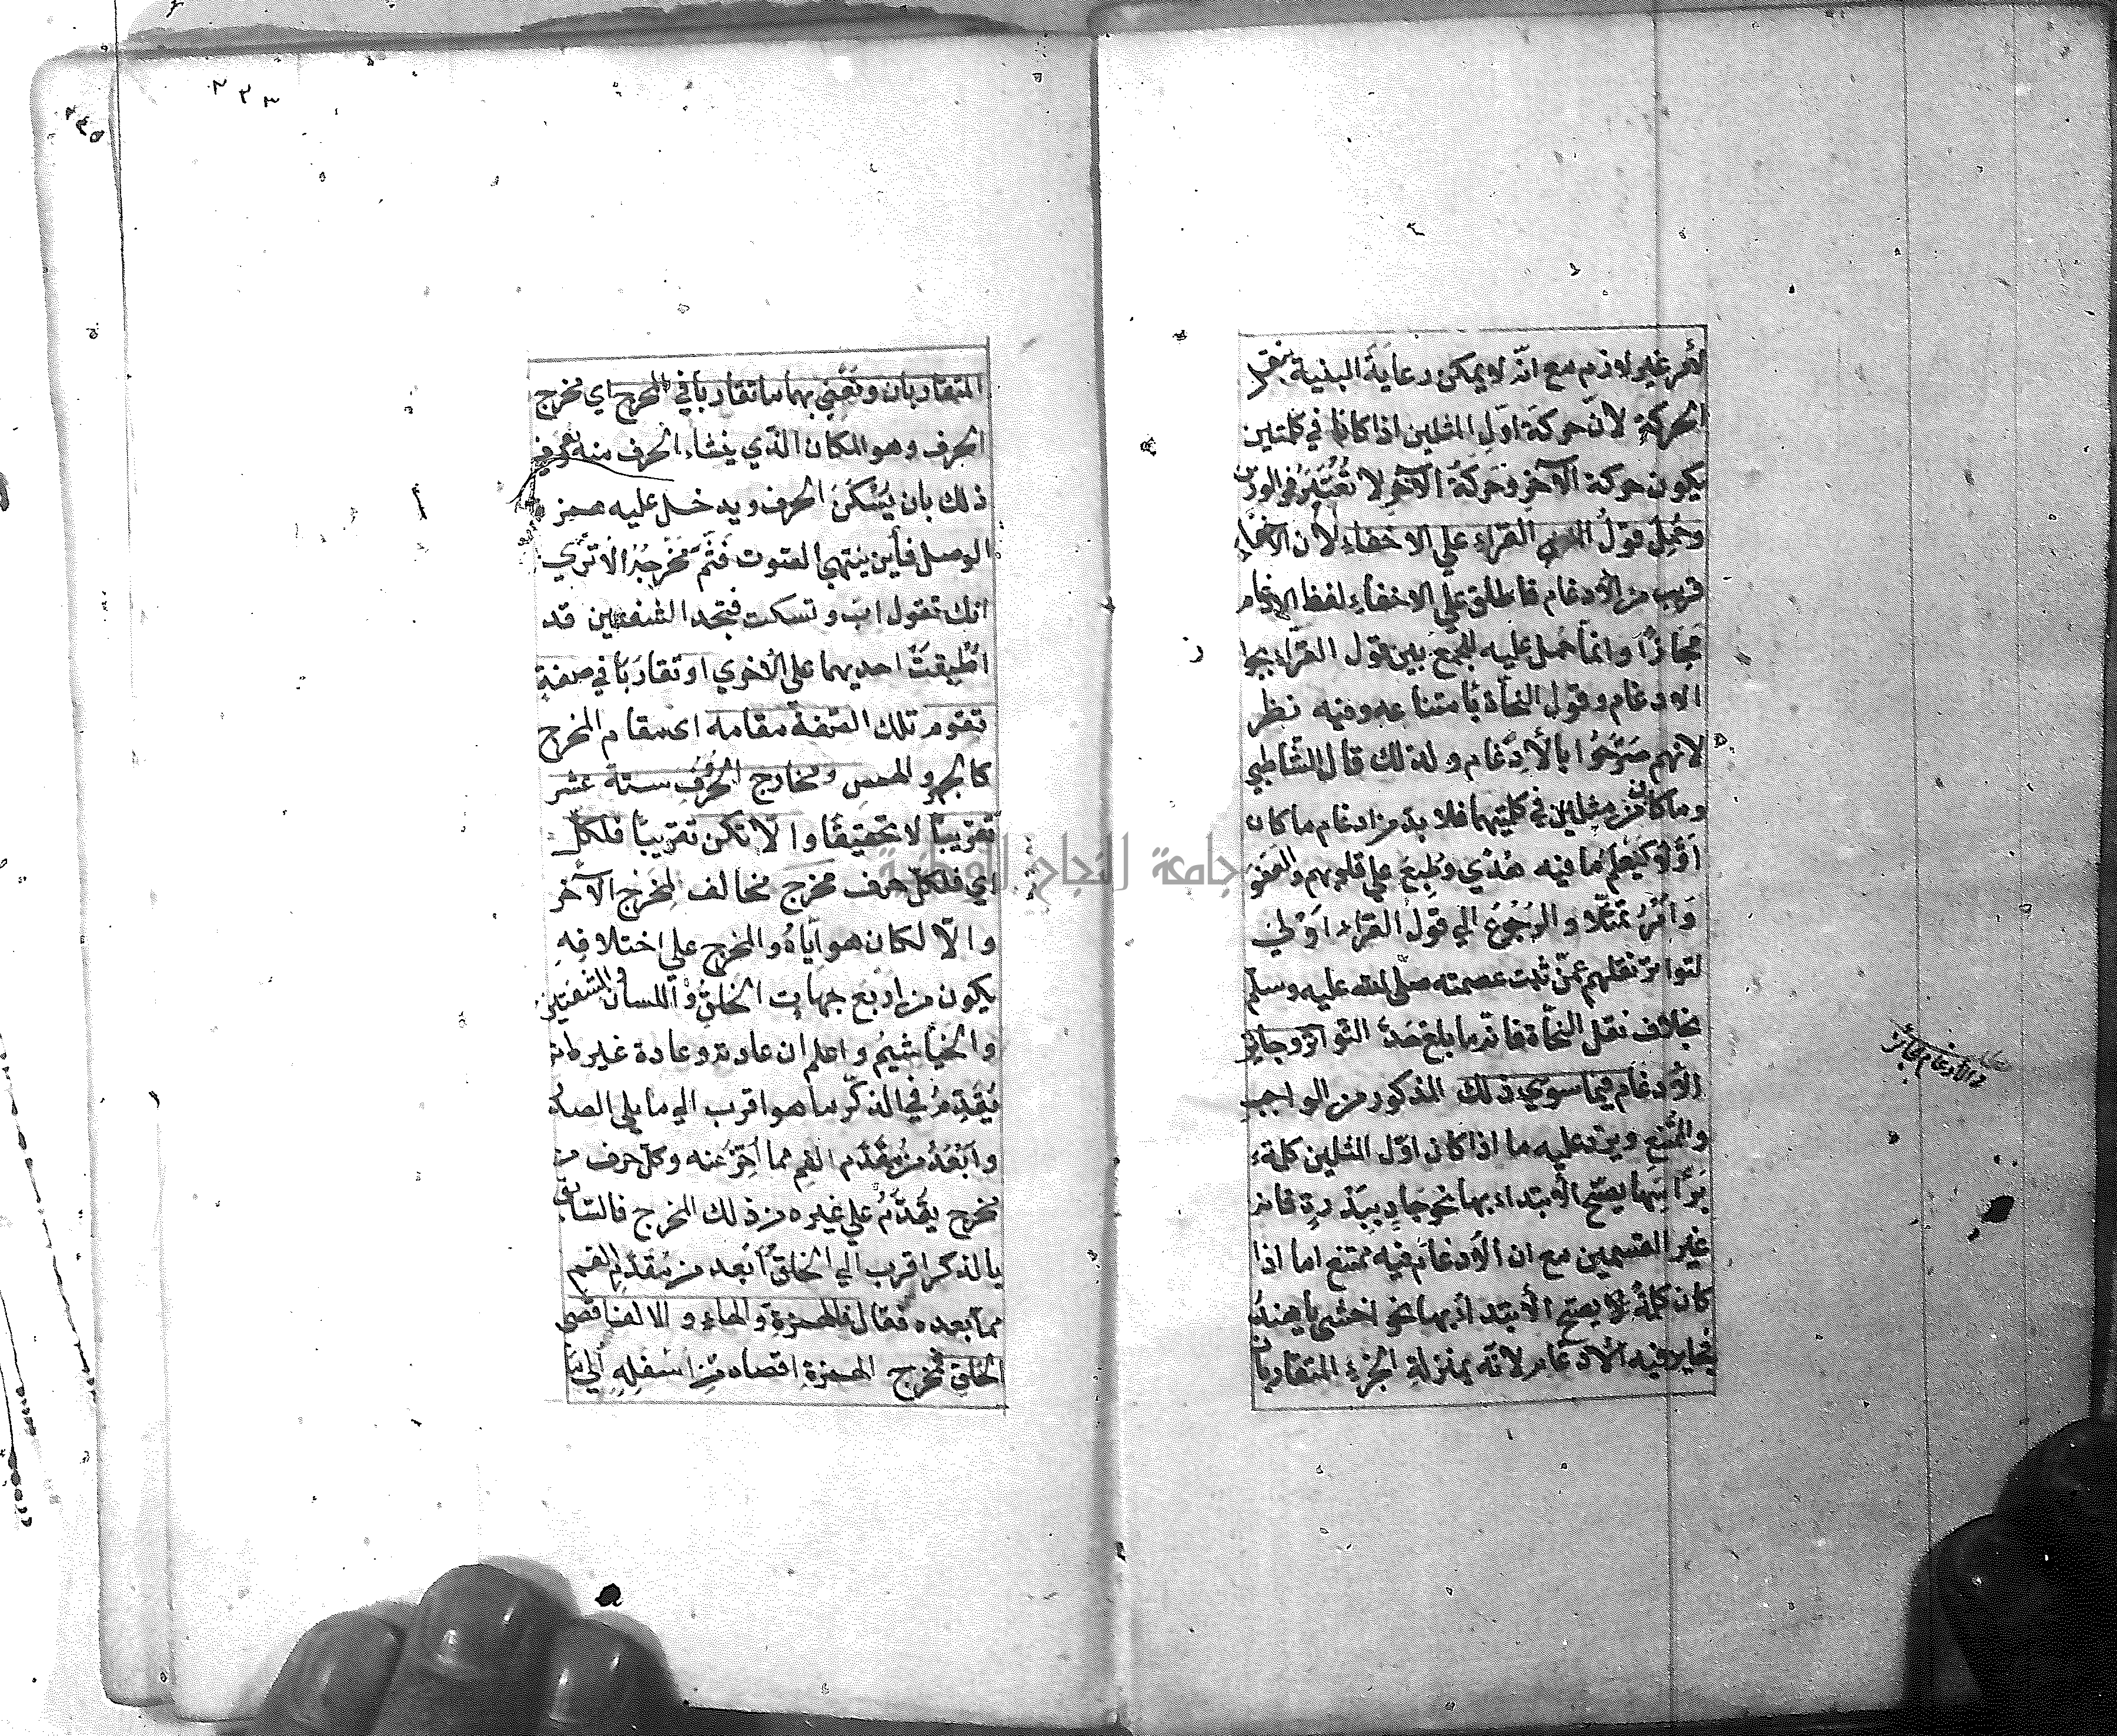 لأمر غير لازم مع انّه لا يمكن رعاية البنية بنقل
الحركة لانّ حركة اول المثلين اذا كانا في كلمتين
يكون حركة الآخر وحركة الآخر لا تُعْتَبَرُ في الوزن
وحُمِلَ قول القراء علي الاخفاء لان الاخفاء
قريب من الادغام فاطلق علي الاخفاء لفظ الادغام
مجازًا وانما حُمل عليه للجمع بين قول القرّاء بجواز
الادغام وقول النحاة بامتناعه وفيه نظر
لانهم صَرَّحُوا بالأدغام ولذلك قال الشاطبي
وما كان من مثلين في كلمتيهما فلا بد من ادغام ما كان
اوّلا كيعلم ما فيه هُدًي وطُبِعَ علي قلوبهم والعفو
وَأْمُرْ تمثّلا والرجُوعُ الي قول القراء اَوْلي
لتواتر نقلهم عمّن ثبت عصمته صلّي الله عليه وسلّم
بخلاف نقل النحّاة فانه ما بلغ حَدّ التّواتر وجائز
الأدغام فيما سوي ذلك المذكور من الواجب
والممتنع ويرد عليه ما اذا كان اوّل المثلين كلمة
بَرَأسِهَا يصحّ الابتداء بها نحو جَادٍ ببَذرةٍ فانه
غير القسمين مع ان الأدغام فيه ممتنع اما اذا
كان كلمةً لا يصحّ الأبتداء بها نحو اخشي يا هندُ
فجايز فيه الأدغام لانّه بمنزلة الجزء المتقاربان
والأدغام جائز
٢٣٣
٢٣٥
المتقاربان ونَعْني بهما ما تقاربا في المخرج اي مخرج
الحرف وهو المكان الذّي ينشاء الحرف منه تعرف
ذلك بان يُسَكَّنَ الحرف ويدخل عليه همزة
الوصل فأين ينتهي الصّوت فَثَمَّ مَخْرجُهُ الا تَرَي
انك تقول ابْ وتسكت فتجد الشفتين قد
اَطْبقَتْ احديهما علي الأخري او تقارَبَا في صفةٍ
تقوم تلك الصّفة مقامه اي مقام المخرج
كالجهر والهمس ومخارج الحُرُوفِ ستة عشر
تقريبًا لا تحقيقًا والّا تكن تقريبًا فلكلّ
اي فلكلّ حرف مخرج مخالف لمخرج الآخر
والّا لكان هو اَيّاهُ والمخرج علي اختلافِهِ
يكون من اربع جهات الحَلْقِ واللسان والشفتين
والخيَاشيم واعلم ان عادته وعادة غيره ان
يُقَدِّمُ في الذكر ما هو اقرب الي ما يلي الصدر
وابْعَدُ من مُقَدّم الفم مما اُخِّرَ عنه وكلّ حرف من
مخرج يُقَدَّمُ علي غيره من ذلك المخرج فالسّابق
بالذكر اقرب الي الحلق اَبعد من مُقَدَّم الفم
ممّا بعده فقال فللهمزةِ والهاءِ والالف اقصي
الحَلْقِ فمخرج الهمزة اقصاه من اسْفلِهِ الي ما
جامعة النجاح الوطنية